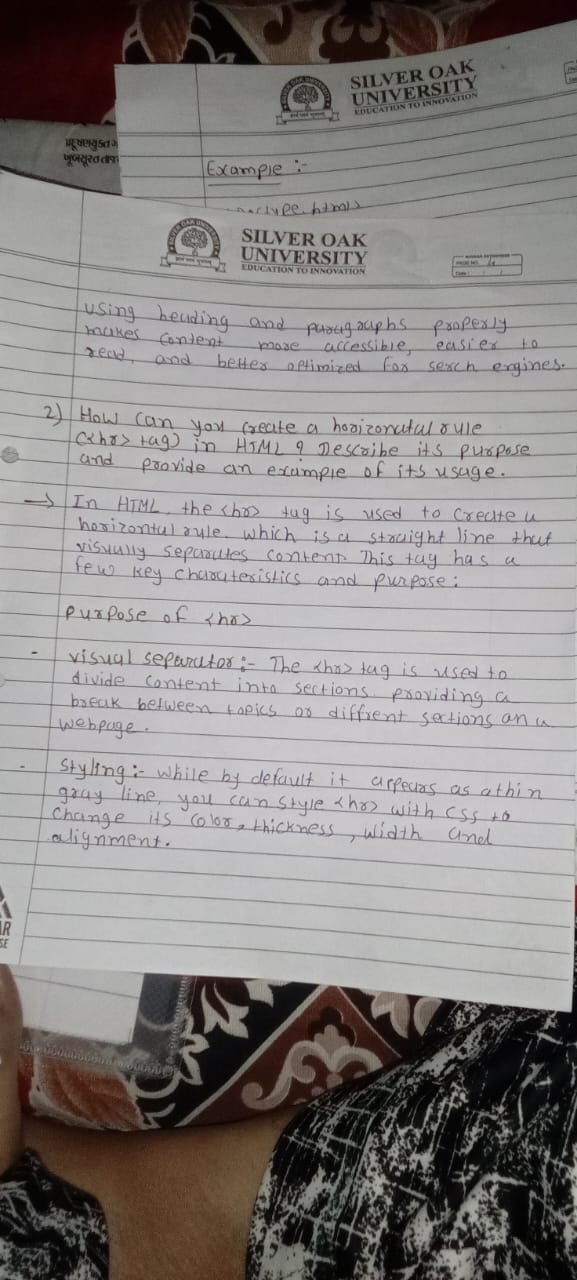 SILVER OAK
UNIVERSITY
EDUCATION TO INNOVATION
Example :-
SILVER OAK
UNIVERSITY
EDUCATION TO INNOVATION
using heading and paragraphs properly
makes content more accessible, easier to
read, and better optimized for serch ergines.
2) How can you create a horizonatal rule
(<hr> tag) in HTML ? Describe its purpose
and provide an example of its usage.
→ In HTML, the <hr> tag is used to create a
horizontal rule, which is a straight line that
visually separates content. This tag has a
few key charateristics and purpose :
purpose of <hr>
- visual separator :- The <hr> tag is used to
divide content into sections, providing a
break between topics or diffrent sections on a
webpage.
- Styling :- while by default it appears as a thin
gray line, you can style <hr> with css to
change its color, thickness, width and
alignment.